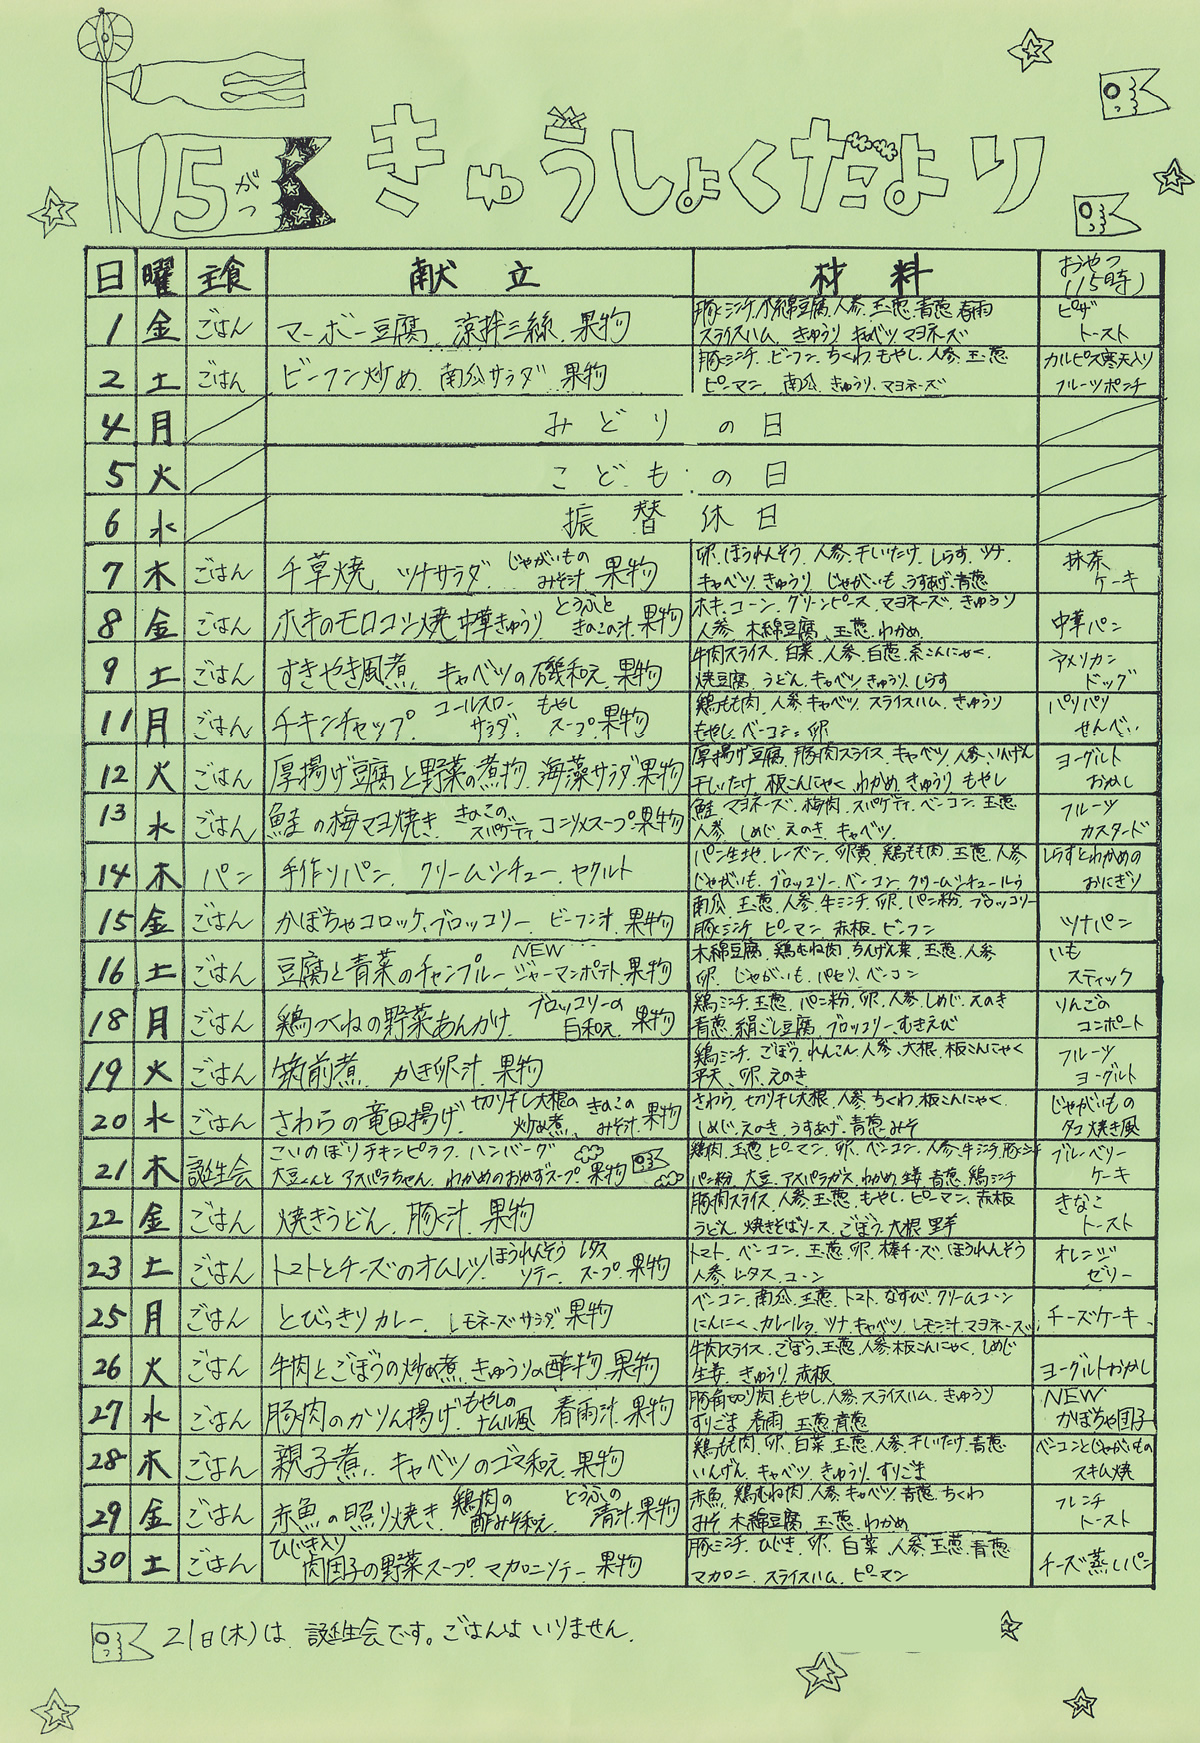 5がつ
きゅうしょくだより
日 曜 主食 献立 材料 おやつ(15時)
1 金 ごはん マーボー豆腐、涼拌三絲、果物 豚ミンチ、木綿豆腐、人参、玉葱、青葱、春雨 ピザ
スライスハム、きゅうり、キャベツ、マヨネーズ トースト
2 土 ごはん ビーフン炒め、南瓜サラダ、果物 豚ミンチ、ビーフン、ちくわ、もやし、人参、玉葱 カルピス寒天入り
ピーマン、南瓜、きゅうり、マヨネーズ フルーツポンチ
4 月 みどりの日
5 火 こどもの日
6 水 振替休日
7 木 ごはん 千草焼、ツナサラダ、じゃがいものみそ汁、果物 卵、ほうれんそう、人参、干しいたけ、しらす、ツナ 抹茶
キャベツ、きゅうり、じゃがいも、うすあげ、青葱 ケーキ
8 金 ごはん ホキのモロコシ焼、中華きゅうり、とうふときのこの汁、果物 ホキ、コーン、グリーンピース、マヨネーズ、きゅうり 中華パン
人参、木綿豆腐、玉葱、わかめ
9 土 ごはん すきやき風煮、キャベツの磯和え、果物 牛肉スライス、白菜、人参、白葱、糸こんにゃく、 アメリカン
焼豆腐、うどん、キャベツ、きゅうり、しらす ドッグ
11 月 ごはん チキンチャップ、コールスローサラダ、もやしスープ、果物 鶏もも肉、人参、キャベツ、スライスハム、きゅうり パリパリ
もやし、ベーコン、卵 せんべい
12 火 ごはん 厚揚げ豆腐と野菜の煮物、海藻サラダ、果物 厚揚げ豆腐、豚肉スライス、キャベツ、人参、いんげん ヨーグルト
干しいたけ、板こんにゃく、わかめ、きゅうり、もやし おかし
13 水 ごはん 鮭の梅マヨ焼き、きのこのスパゲティ、コンソメスープ、果物 鮭、マヨネーズ、梅肉、スパゲティ、ベーコン、玉葱 フルーツ
人参、しめじ、えのき、キャベツ、 カスタード
14 木 パン 手作りパン、クリームシチュー、ヤクルト パン生地、レーズン、卵黄、鶏もも肉、玉葱、人参 しらすとわかめの
じゃがいも、ブロッコリー、ベーコン、クリームシチュールゥ おにぎり
15 金 ごはん かぼちゃコロッケ、ブロッコリー、ビーフン汁、果物 南瓜、玉葱、人参、牛ミンチ、卵、パン粉、ブロッコリー ツナパン
豚ミンチ、ピーマン、赤板、ビーフン
16 土 ごはん 豆腐と青菜のチャンプルー、NEWジャーマンポテト、果物 木綿豆腐、鶏むね肉、ちんげん菜、玉葱、人参 いも
卵、じゃがいも、パセリ、ベーコン スティック
18 月 ごはん 鶏つくねの野菜あんかけ、ブロッコリーの白和え、果物 鶏ミンチ、玉葱、パン粉、卵、人参、しめじ、えのき りんごの
青葱、絹ごし豆腐、ブロッコリー、むきえび コンポート
19 火 ごはん 筑前煮、かき卵汁、果物 鶏ミンチ、ごぼう、れんこん、人参、大根、板こんにゃく フルーツ
平天、卵、えのき ヨーグルト
20 水 ごはん さわらの竜田揚げ、切り干し大根の炒め煮、きのこのみそ汁、果物 さわら、切り干し大根、人参、ちくわ、板こんにゃく、 じゃがいもの
しめじ、えのき、うすあげ、青葱、みそ タコ焼き風
21 木 誕生会 こいのぼりチキンピラフ、ハンバーグ 鶏肉、玉葱、ピーマン、卵、ベーコン、人参、牛ミンチ、豚ミンチ ブルーベリー
大豆くんとアスパラちゃん、わかめのおかずスープ、果物 パン粉、大豆、アスパラガス、わかめ、生姜、青葱、鶏ミンチ ケーキ
22 金 ごはん 焼きうどん、豚汁、果物 豚肉スライス、人参、玉葱、もやし、ピーマン、赤板 きなこ
うどん、焼きそばソース、ごぼう、大根、里芋 トースト
23 土 ごはん トマトとチーズのオムレツ、ほうれんそうソテー、レタススープ、果物 トマト、ベーコン、玉葱、卵、棒チーズ、ほうれんそう オレンジ
人参、レタス、コーン ゼリー
25 月 ごはん とびっきりカレー、レモネーズサラダ、果物 ベーコン、南瓜、玉葱、トマト、なすび、クリームコーン チーズケーキ
にんにく、カレールゥ、ツナ、キャベツ、レモン汁、マヨネーズ
26 火 ごはん 牛肉とごぼうの炒め煮、きゅうりの酢物、果物 牛肉スライス、ごぼう、玉葱、人参、板こんにゃく、しめじ ヨーグルトおかし
生姜、きゅうり、赤板
27 水 ごはん 豚肉のかりん揚げ、もやしのナムル風、春雨汁、果物 豚角切り肉、もやし、人参、スライスハム、きゅうり NEW
すりごま、春雨、玉葱、青葱 かぼちゃ団子
28 木 ごはん 親子煮、キャベツのゴマ和え、果物 鶏もも肉、卵、白菜、玉葱、人参、干しいたけ、青葱 ベーコンとじゃがいもの
いんげん、キャベツ、きゅうり、すりごま スキム焼
29 金 ごはん 赤魚の照り焼き、鶏肉の酢みそ和え、とうふの清汁、果物 赤魚、鶏むね肉、人参、キャベツ、青葱、ちくわ フレンチ
みそ、木綿豆腐、玉葱、わかめ トースト
30 土 ごはん ひじき入り肉団子の野菜スープ、マカロニソテー、果物 豚ミンチ、ひじき、卵、白菜、人参、玉葱、青葱 チーズ蒸しパン
マカロニ、スライスハム、ピーマン
21日(木)は、誕生会です。ごはんはいりません。